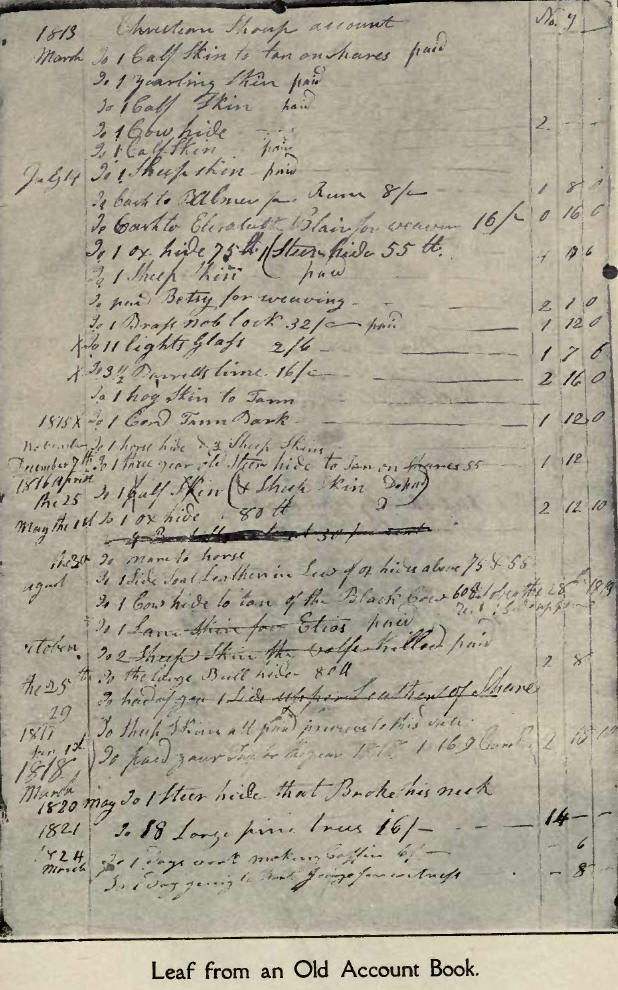 1813 Christian Shoup account No. 7
March To 1 Calf Skin to tan on shares paid
To 1 yearling Skin paid
To 1 Calf Skin paid
To 1 Cow hide 2 - -
To 1 Calf Skin paid
July 14 To 1 Sheep skin paid
To Cash to Rum 8/- 1 8 0
To Cash to Elizabeth Blair for weaven 16/- 0 16 0
To 1 ox hide 75 lb 1 Steer hide 55 lb. 6
To 1 Sheep Skin paid
To paid Betsy for weaving - 2 1 0
To 1 Brass nob lock 32/- paid 1 12 0
X To 11 lights Glass 2/6 1 7 6
X To 3 1/2 Barrells lime 16/- 2 16 0
To 1 hog Skin to Tann
1815 X To 1 Cord Tann Bark 1 12 0
November To 1 horse hide & 2 Sheep Skins
December 7th To 1 three year old Steer hide to Tan on shares 55 1 12
1816 April the 25 To 1 Calf Skin & Sheep Skin
May the 1st To 1 ox hide 80 lb 2 12 10
the 30 To mare to horse
agust To 1 Side Soal Leather in Lew of ox hides above 75 & 55
To 1 Cow hide to tan of the Black Cow 60 the 28 1819
To 1 Lam Skin for Elios paid
October To 2 Sheep Skin the wolfe killed paid
the 25th To the large Bull hide 80 lb 2 8
29 To had of you 1 Side upper Leather of Shares
1817 To Sheep Skins all paid previous to this date
Jan 1st To paid your Tax for the year 1816 1 16 9 2
1818
March
1820 may To 1 Steer hide that Broke his neck
1821 To 18 Large pine trees 16/- 14 - -
1824 To 1 days work making Coffin 6/- - 6
March To 1 Day going to for witness - 8 -
Leaf from an Old Account Book.